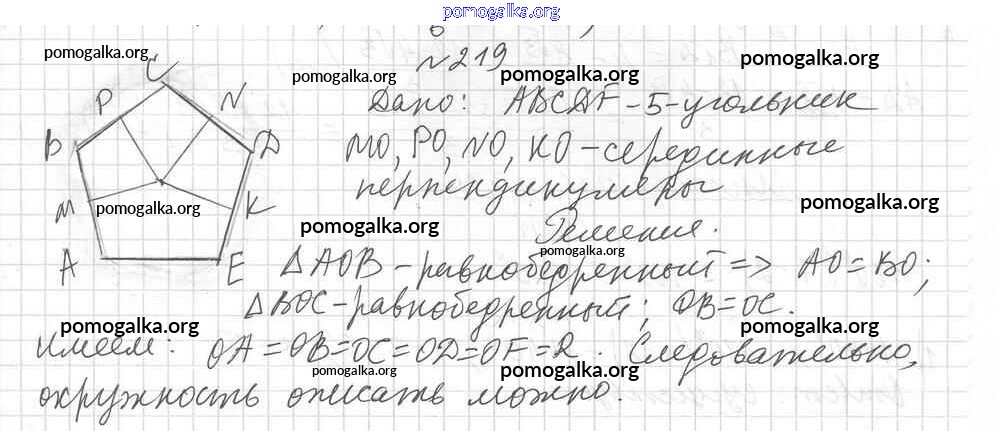 pomogalka.org
№219
pomogalka.org
pomogalka.org
pomogalka.org
pomogalka.org
C
P
N
B
D
M
K
A
E
pomogalka.org
Дано: ABCDF - 5-угольник
MO, PO, NO, KO - серединные
перпендикуляры
pomogalka.org
pomogalka.org
pomogalka.org
Решения.
pomogalka.org
ΔAOB - равнобедренный => AO = BO;
ΔBOC - равнобедренный; OB = OC.
pomogalka.org
pomogalka.org
pomogalka.org
Имеем: OA = OB = OC = OD = OF = R. Следовательно,
pomogalka.org
pomogalka.org
окружность описать можно.